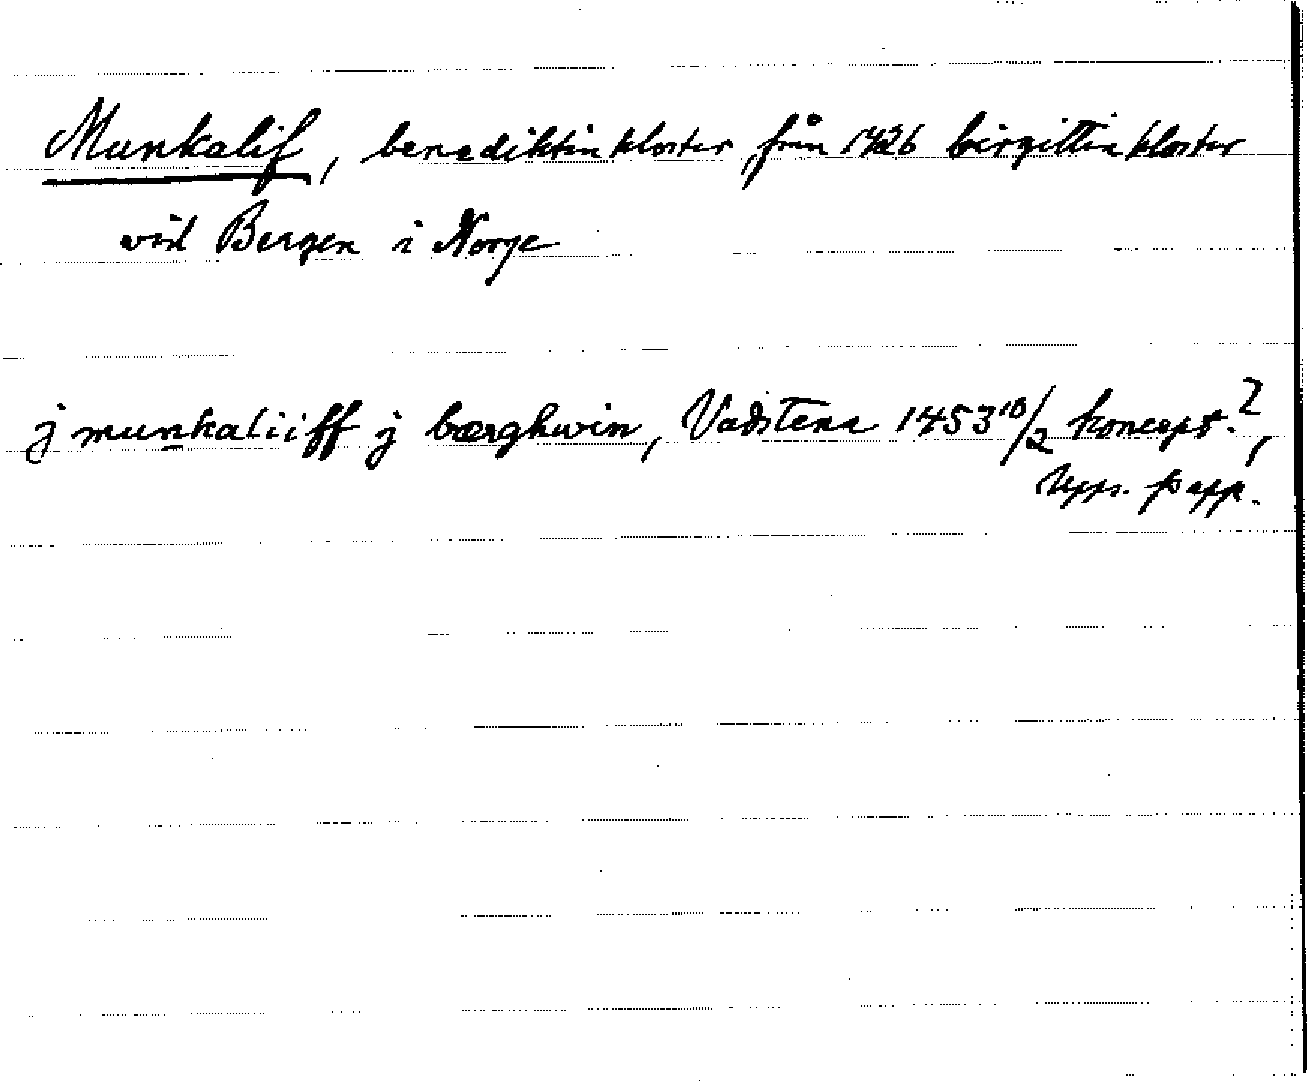 Munkalif, benediktinkloster, från 1426 birgittinkloster
vid Bergen i Norge
j munkaliiff j bærghwin, Vadstena 1453 10/2 koncept?,
Upps. papp.